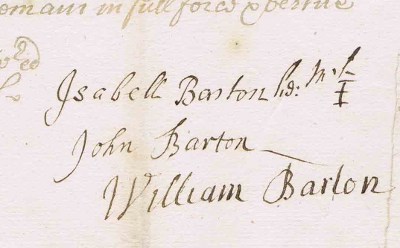 remain in full force & vertue
ed
Isabell Barton hir mk
John Barton
William Barton